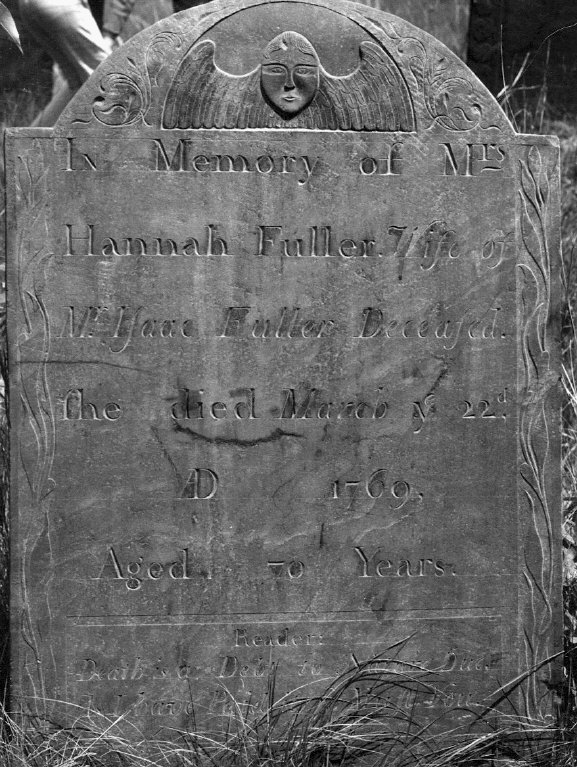 In Memory of Mrs
Hannah Fuller, Wife of
Mr. Iſaac Fuller Deceaſed.
ſhe died March ye 22d.
AD 1769,
Aged 70 Years.
Reader:
Death is a Debt to Due
I have You